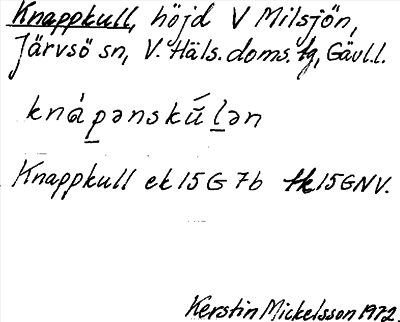 Knappkull, höjd V Milsjön,
Järvsö sn, V. Häls. doms. tg, Gävl.l.
knápənskúlən
Knappkull ek 15 G 7b tk 15 GNV.
Kerstin Mickelsson 1972.